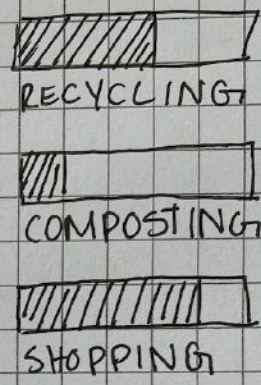 RECYCLING
COMPOSTING
SHOPPING